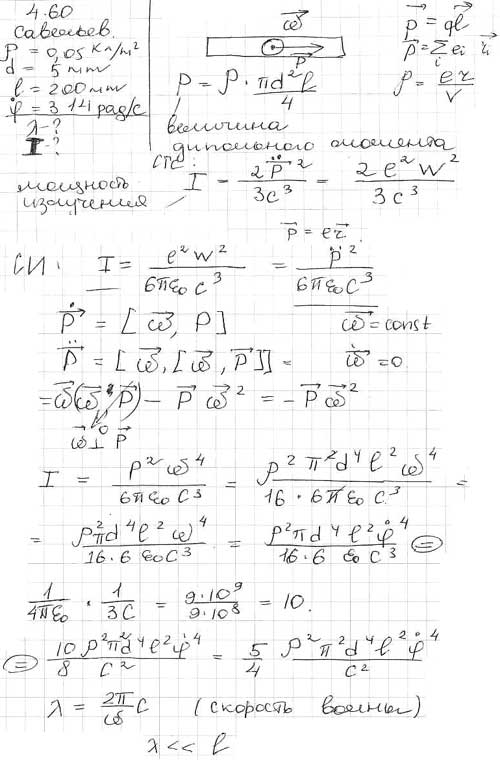 4.60
Савельев.
P = 0,05 Кл/м²
d = 5 мм
l = 200 мм
φ̇ = 314 рад/с
λ-?
I-?
ω⃗
p⃗
P = ρ · πd²l / 4
величина
дипольного момента
p⃗ = ql⃗
p⃗ = Σᵢ eᵢ r⃗ᵢ
P = er⃗ / V
мощность
излучения
СГС: I = 2p̈² / 3c³ = 2e²w² / 3c³
p⃗ = er⃗
СИ: I = e²w² / 6πε₀c³ = p̈² / 6πε₀c³
ṗ⃗ = [ω⃗, P] ω⃗ = const
p̈⃗ = [ω⃗, [ω⃗, p⃗]] = ω̇⃗ = 0
= ω⃗(ω⃗ P⃗) - P⃗ω⃗² = -P⃗ω⃗²
0
ω⃗ ⊥ p⃗
I = p²ω⁴ / 6πε₀c³ = ρ²π²d⁴l²ω⁴ / 16 · 6πε₀c³ =
= ρ²πd⁴l²ω⁴ / 16·6 ε₀c³ = ρ²πd⁴l²φ̇⁴ / 16·6 ε₀c³ =
1 / 4πε₀ · 1 / 3c = 9·10⁹ / 9·10⁸ = 10.
= 10ρ²π²d⁴l²φ̇⁴ / 8 c² = 5/4 ρ²π²d⁴l²φ̇⁴ / c²
λ = 2π/ω c (скорость волны)
λ << l